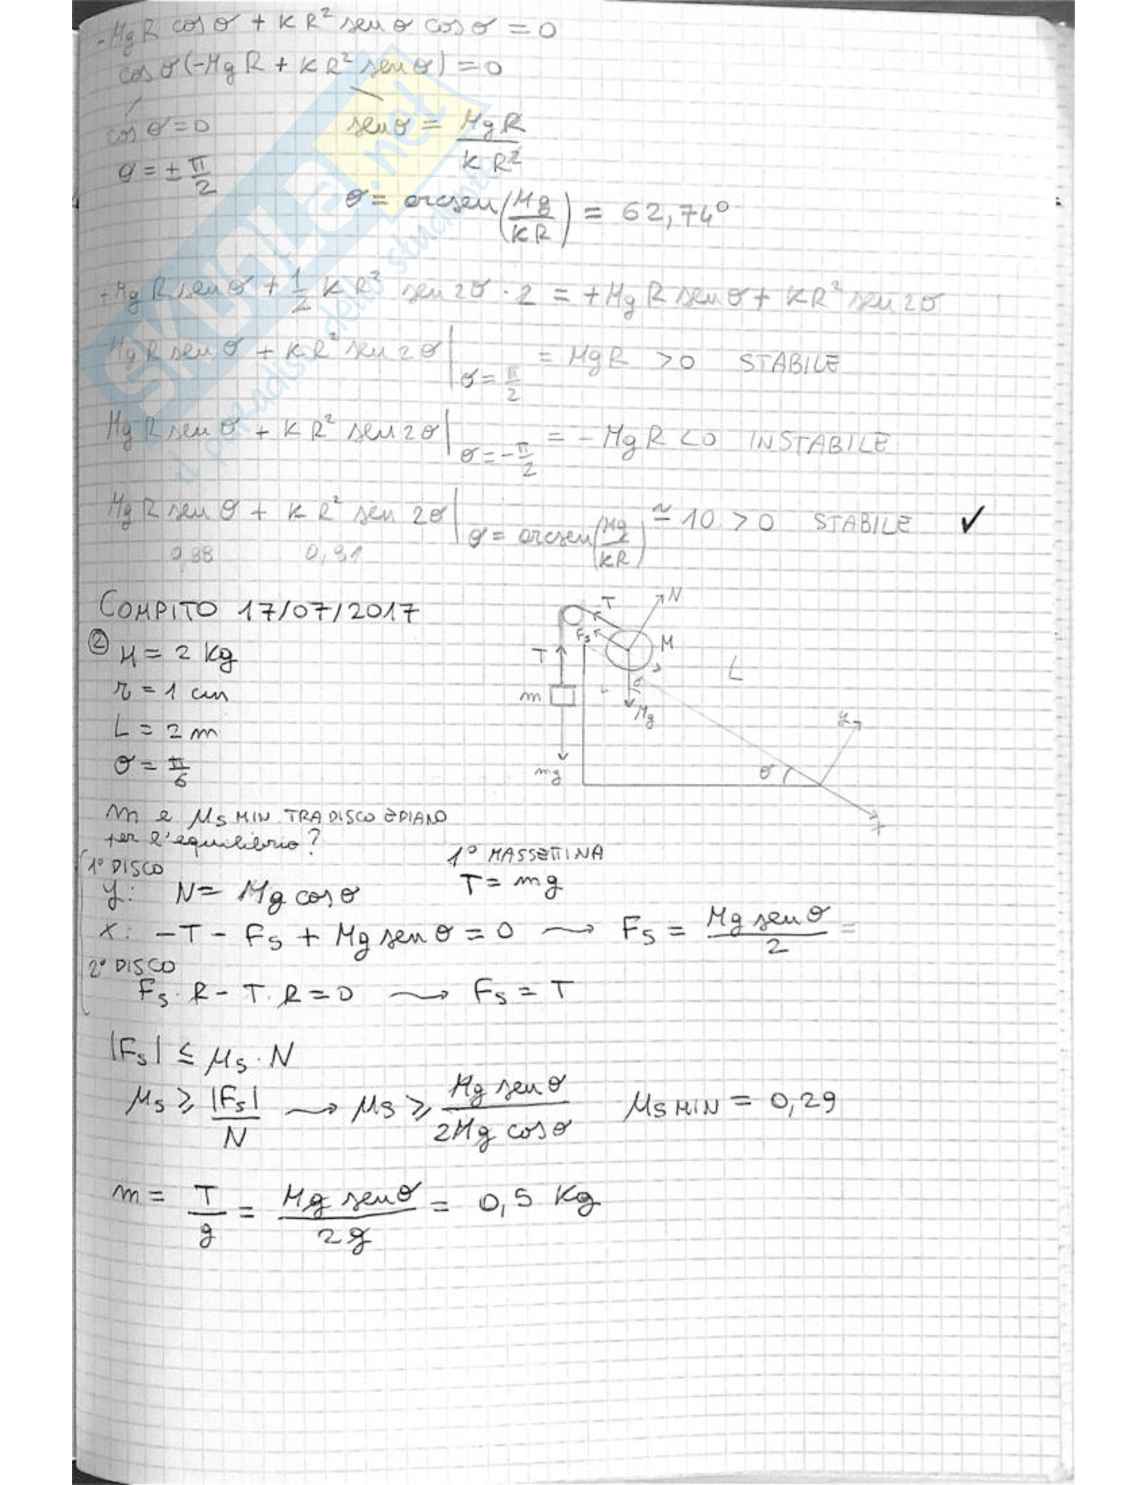 -MgR cos θ + KR² sen θ cos θ = 0
cos θ(-MgR + KR² sen θ) = 0
cos θ = 0 sen θ = MgR / KR²
θ = ± π/2
θ = arcsen(Mg/KR) = 62,74°
+MgR sen θ + 1/2 KR² sen 2θ · 2 = +MgR sen θ + KR² sen 2θ
MgR sen θ + KR² sen 2θ |θ = π/2 = MgR > 0 STABILE
MgR sen θ + KR² sen 2θ |θ = -π/2 = -MgR < 0 INSTABILE
MgR sen θ + KR² sen 2θ |θ = arcsen(Mg/KR) ≃ 10 > 0 STABILE ✓
0,88 0,81
COMPITO 17/07/2017
② M = 2 Kg
r = 1 cm
L = 2 m
θ = π/6
T N Fs M T L m θ Mg y mg θ x
m e μs MIN TRA DISCO E PIANO
per l'equilibrio?
1° DISCO 1° MASSETTINA
y: N = Mg cos θ T = mg
x: -T - Fs + Mg sen θ = 0 → Fs = Mg sen θ / 2 =
2° DISCO
Fs · R - T · R = 0 → Fs = T
|Fs| ≤ μs · N
μs ≥ |Fs| / N → μs ≥ Mg sen θ / 2Mg cos θ μs MIN = 0,29
m = T/g = Mg sen θ / 2g = 0,5 Kg
SKUOLA.net